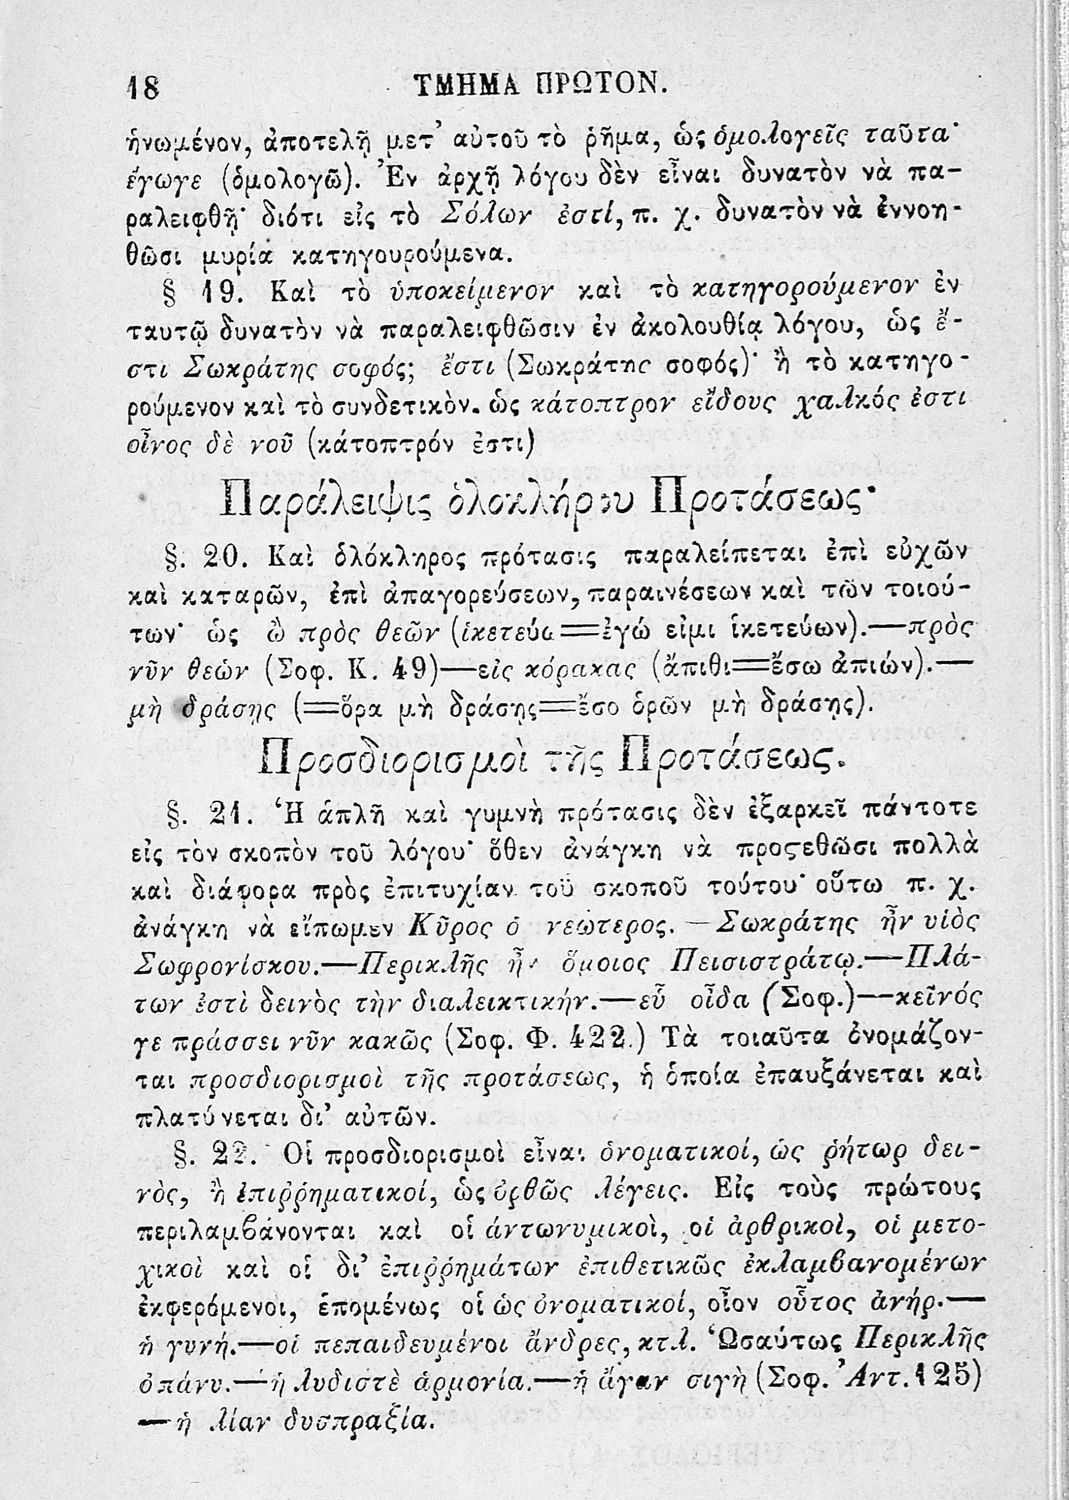 18 ΤΜΗΜΑ ΠΡΩΤΟΝ.
ἡνωμένον, ἀποτελῇ μετ᾽ αὐτοῦ τὸ ῥῆμα, ὡς ὁμολογεῖς ταῦτα·
ἔγωγε (ὁμολογῶ). Ἐν ἀρχῇ λόγου δὲν εἶναι δυνατὸν νὰ πα-
ραλειφθῇ· διότι εἰς τὸ Σόλων ἐστί, π. χ. δυνατὸν νὰ ἐννοη-
θῶσι μυρία κατηγουρούμενα.
§ 19. Καὶ τὸ ὑποκείμενον καὶ τὸ κατηγορούμενον ἐν
ταυτῷ δυνατὸν νὰ παραλειφθῶσιν ἐν ἀκολουθίᾳ λόγου, ὡς ἔ-
στι Σωκράτης σοφός; ἔστι (Σωκράτης σοφός)· ἢ τὸ κατηγο-
ρούμενον καὶ τὸ συνδετικὸν. ὡς κάτοπτρον εἴδους χαλκός ἐστι
οἶνος δὲ νοῦ (κάτοπτρόν ἐστι)
Παράλειψις ὁλοκλήρου Προτάσεως·
§. 20. Καὶ ὁλόκληρος πρότασις παραλείπεται ἐπὶ εὐχῶν
καὶ καταρῶν, ἐπὶ ἀπαγορεύσεων, παραινέσεων καὶ τῶν τοιού-
των· ὡς ὢ πρὸς θεῶν (ἱκετεύω=ἐγώ εἰμι ἱκετεύων).—πρὸς
νῦν θεών (Σοφ. Κ. 49)—εἰς κόρακας (ἄπιθι=ἔσω ἀπιών).—
μὴ δράσῃς (=ὅρα μὴ δράσῃς=ἔσο ὁρῶν μὴ δράσῃς).
Προσδιορισμοὶ τῆς Προτάσεως.
§. 21. Ἡ ἁπλῆ καὶ γυμνὴ πρότασις δὲν ἐξαρκεῖ πάντοτε
εἰς τὸν σκοπὸν τοῦ λόγου· ὅθεν ἀνάγκη νὰ προςεθῶσι πολλὰ
καὶ διάφορα πρὸς ἐπιτυχίαν τοῦ σκοποῦ τούτου· οὕτω π. χ.
ἀνάγκη νὰ εἴπωμεν Κῦρος ὁ νεώτερος. — Σωκράτης ἦν υἱὸς
Σωφρονίσκου.—Περικλῆς ἦν ὅμοιος Πεισιστράτῳ.—Πλά-
των ἐστὶ δεινὸς τὴν διαλεικτικήν.—εὖ οἶδα (Σοφ.)—κεῖνός
γε πράσσει νῦν κακῶς (Σοφ. Φ. 422.) Τὰ τοιαῦτα ὀνομάζον-
ται προσδιορισμοὶ τῆς προτάσεως, ἡ ὁποία ἐπαυξάνεται καὶ
πλατύνεται δι᾽ αὐτῶν.
§. 22. Οἱ προσδιορισμοὶ εἶναι ὀνοματικοί, ὡς ῥήτωρ δει-
νὸς, ἢ ἐπιῤῥηματικοί, ὡς ὀρθῶς λέγεις. Εἰς τοὺς πρώτους
περιλαμβάνονται καὶ οἱ ἀντωνυμικοὶ, οἱ ἀρθρικοὶ, οἱ μετο-
χικοὶ καὶ οἱ δι᾽ ἐπιῤῥημάτων ἐπιθετικῶς ἐκλαμβανομένων
ἐκφερόμενοι, ἑπομένως οἱ ὡς ὀνοματικοί, οἷον οὗτος ἀνήρ.—
ἡ γυνή.—οἱ πεπαιδευμένοι ἄνδρες, κτλ. Ὡσαύτως Περικλῆς
ὁ πάνυ.—ἡ λυδιστὲ ἁρμονία.—ἡ ἄγαν σιγὴ (Σοφ. Ἀντ. 125)
—ἡ λίαν δυσπραξία.